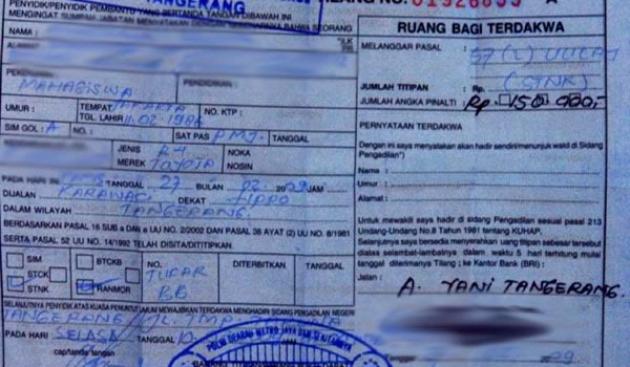 TANGERANG
PENYIDIK/PENYIDIK PEMBANTU YANG BERTANDA TANGAN DIBAWAH INI
MENGINGAT SUMPAH JABATAN MENYATAKAN DENGAN SEBENARNYA BAHWA SEORANG
NAMA :
PENDIDIKAN :
MAHASISWA
UMUR : TEMPAT JAKARTA NO. KTP :
TGL. LAHIR 11.02.1986
SIM GOL : A NO. : SAT PAS PMJ. TANGGAL
JENIS R4 NOKA
MEREK TOYOTA NOSIN
PADA HARI INI TANGGAL 27 BULAN 02 JAM
DIJALAN KARAWACI DEKAT
DALAM WILAYAH TANGERANG.
BERDASARKAN PASAL 16 SUB a DAN a UU NO. 2/2002 DAN PASAL 38 AYAT (2) UU NO. 8/1981
SERTA PASAL 52 UU NO. 14/1992 TELAH DISITA/DITITIPKAN.
SIM BTCKB NO. DITERBITKAN TANGGAL
STCK TUKAR
STNK RANMOR BB
SELANJUTNYA PENYIDIK ATAS KUASA PENUNTUT UMUM MEWAJIBKAN TERDAKWA MENGHADIRI SIDANG PENGADILAN NEGERI
TANGERANG JL. TMP
PADA HARI SELASA TANGGAL
cap/tanda tangan
POLRI DAERAH METRO JAYA DAN SEKITARNYA
NO. 01926855 A
RUANG BAGI TERDAKWA
MELANGGAR PASAL : 57 (2) UULAJ
(STNK)
JUMLAH TITIPAN : Rp.
JUMLAH ANGKA PINALTI : Rp. 150.000,-
PERNYATAAN TERDAKWA
Dengan ini saya menyatakan akan hadir sendiri/menunjuk wakil di Sidang
Pengadilan*)
Nama :
Umur :
Alamat :
Untuk mewakili saya hadir di sidang Pengadilan sesuai pasal 213
Undang-Undang No.8 Tahun 1981 tentang KUHAP.
Selanjutnya saya bersedia menyerahkan uang titipan sebesar tersebut
diatas selambat-lambatnya dalam waktu 5 hari terhitung mulai
tanggal diterimanya Tilang ; ke Kantor Bank (BRI) :
Jalan : A. YANI TANGERANG.